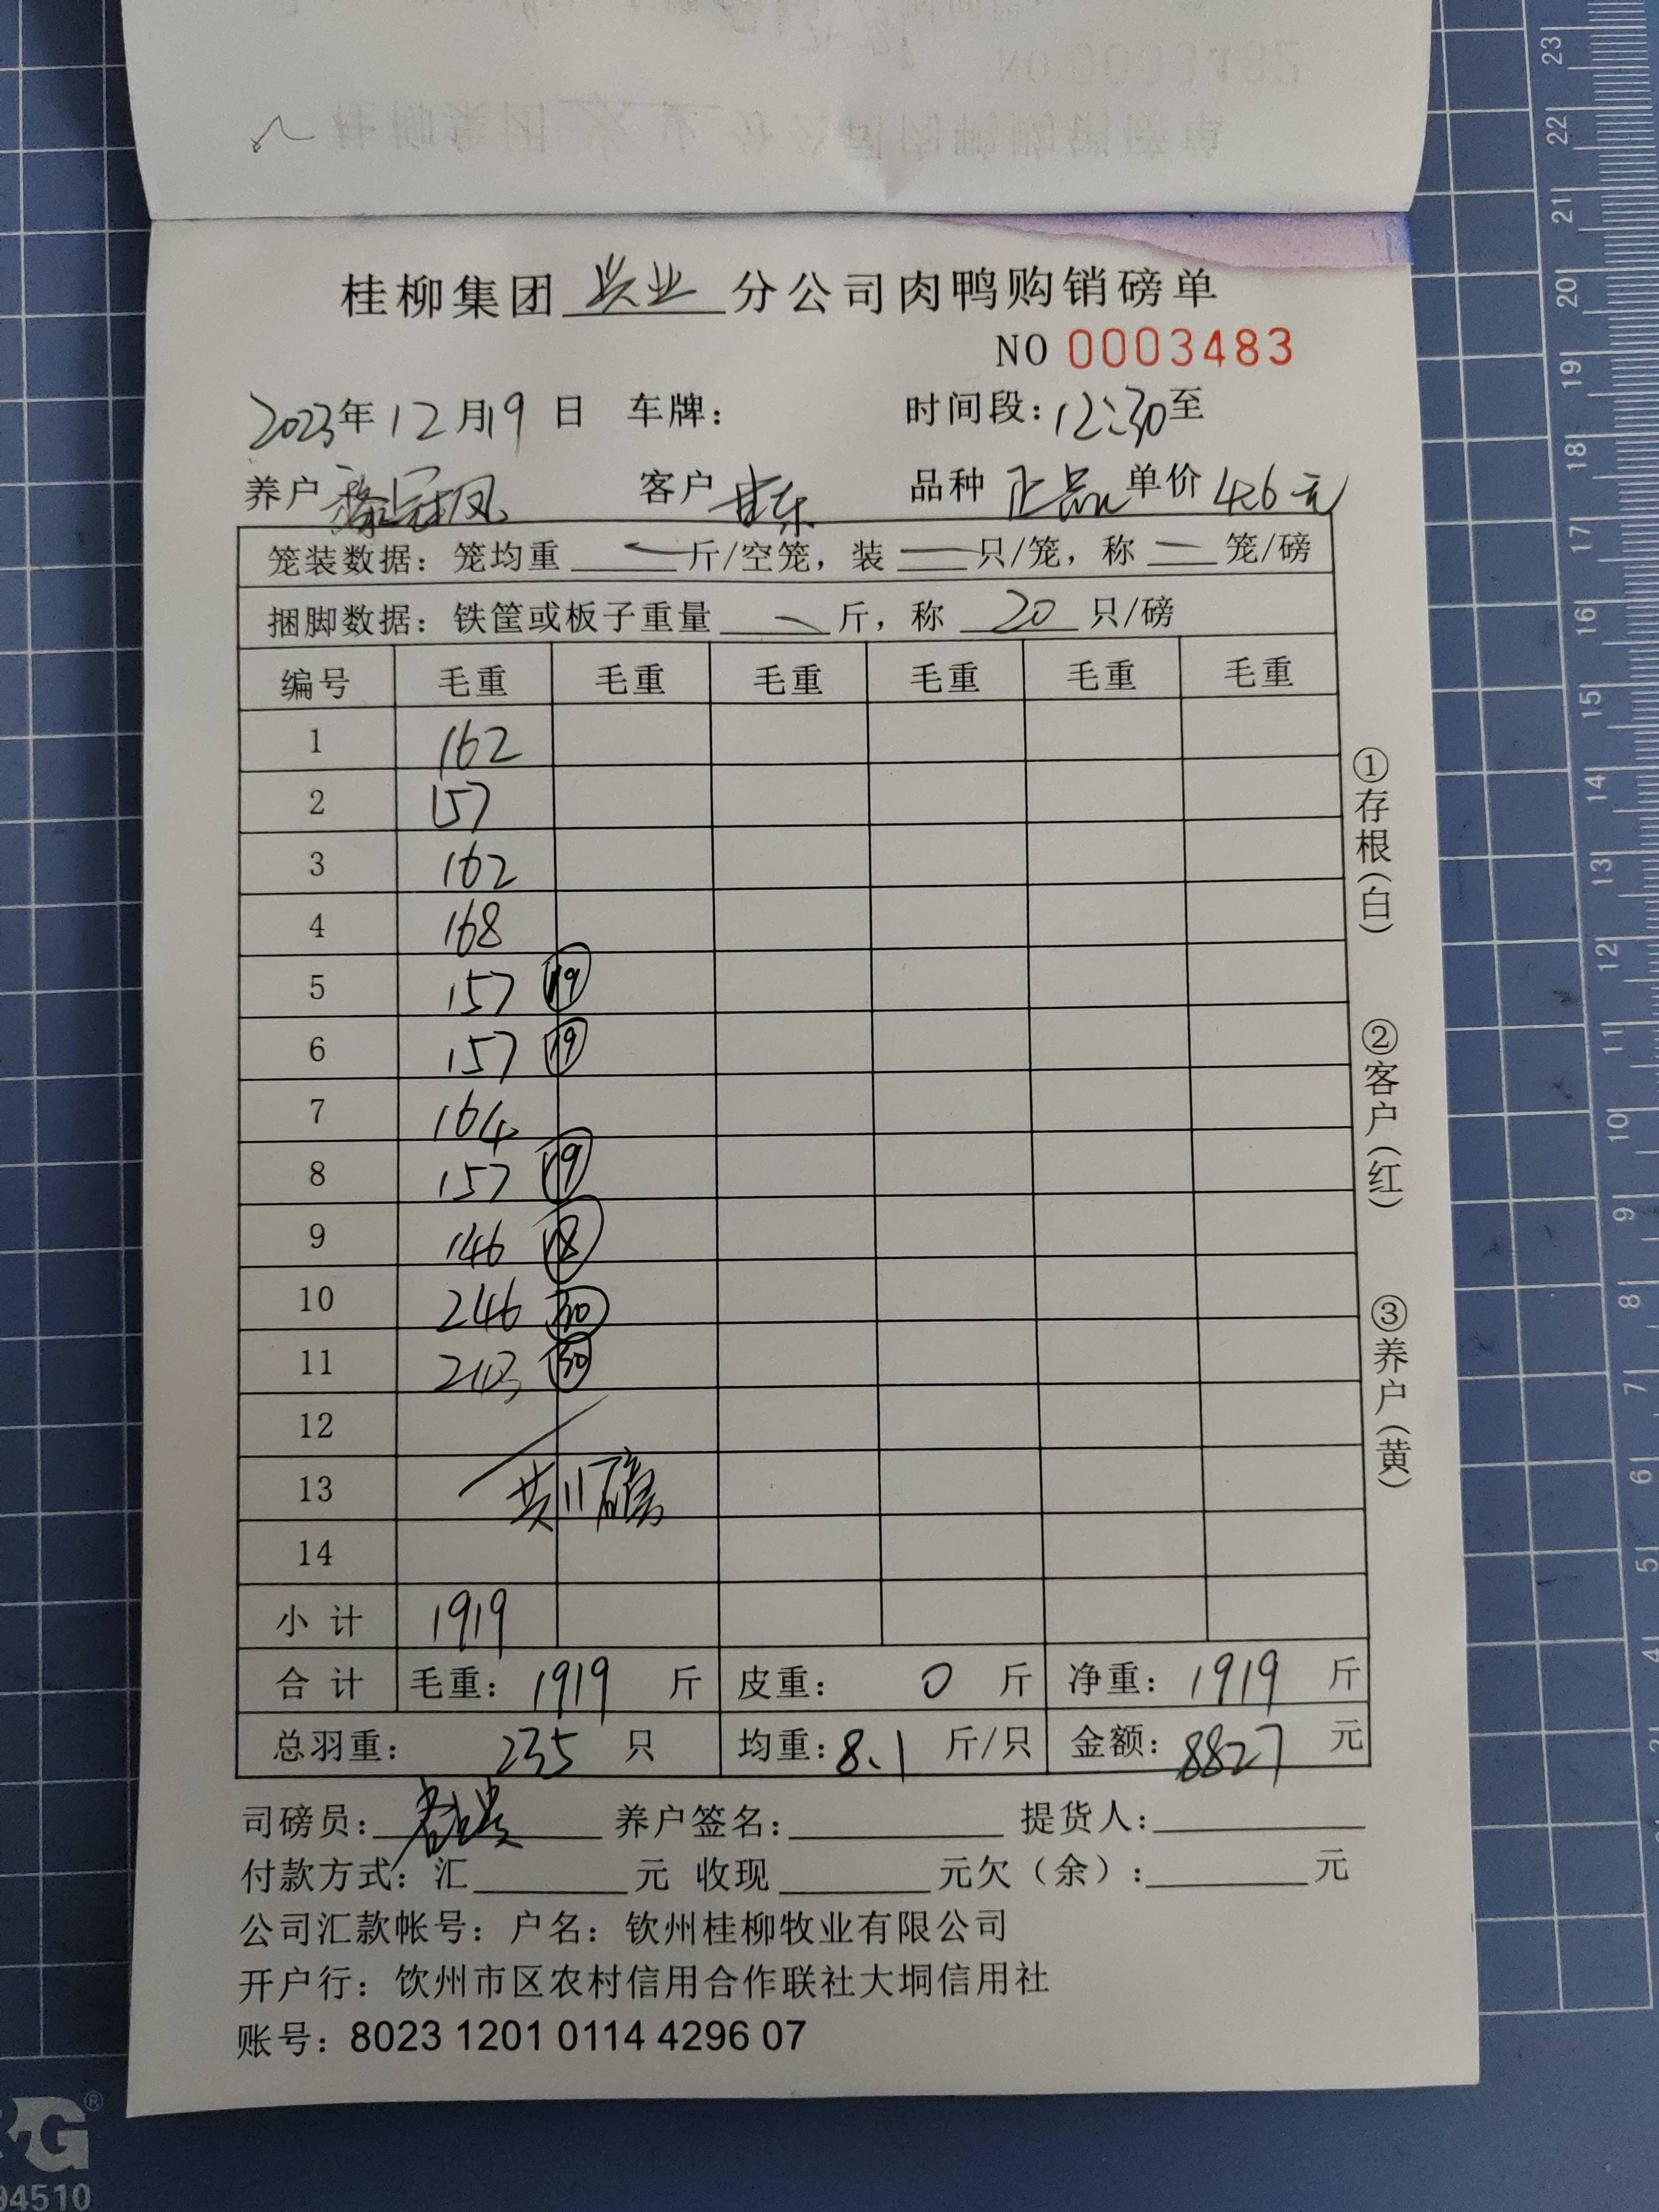 桂柳集团 兴业 分公司肉鸭购销磅单
NO 0003483
2023年12月19日 车牌: 时间段:12:30至
养户 冠凤 客户 甘东 品种 正品 单价 4.6元
笼装数据: 笼均重 — 斤/空笼, 装 — 只/笼, 称 — 笼/磅
捆脚数据: 铁筐或板子重量 — 斤, 称 20 只/磅
编号 毛重 毛重 毛重 毛重 毛重 毛重
1 162
2 157
3 162
4 168
5 157 19
6 157 19
7 164
8 157 19
9 146 18
10 246 30
11 243 30
12
13 共11磅
14
小计 1919
合计 毛重: 1919 斤 皮重: 0 斤 净重: 1919 斤
总羽重: 235 只 均重: 8.1 斤/只 金额: 8827 元
司磅员: 养户签名: 提货人:
付款方式: 汇 元 收现 元欠(余): 元
公司汇款帐号: 户名: 钦州桂柳牧业有限公司
开户行: 钦州市区农村信用合作联社大垌信用社
账号: 8023 1201 0114 4296 07
①存根(白)
②客户(红)
③养户(黄)
94510
23
22
21
20
19
18
17
16
15
14
13
12
11
10
9
8
7
6
5
4